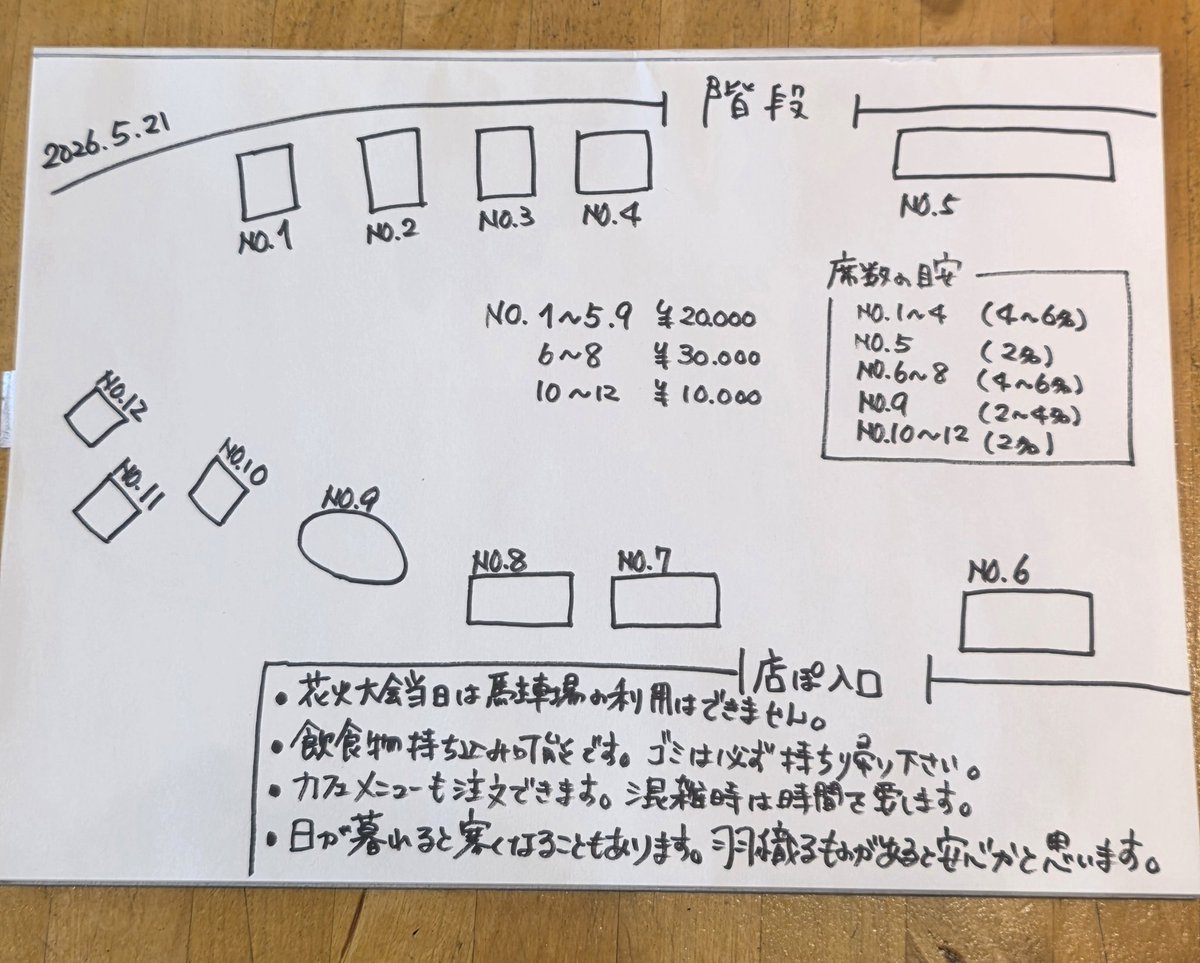 2026.5.21
階段
NO.1
NO.2
NO.3
NO.4
NO.5
NO. 1〜5.9 ¥20.000
6〜8 ¥30.000
10〜12 ¥10.000
席数の目安
NO.1〜4 (4〜6名)
NO.5 (2名)
NO.6〜8 (4〜6名)
NO.9 (2〜4名)
NO.10〜12 (2名)
NO.12
NO.11
NO.10
NO.9
NO.8
NO.7
NO.6
店ぽ入口
・花火大会当日は駐車場の利用はできません。
・飲食物持ち込み可能です。ゴミは必ず持ち帰り下さい。
・カフェメニューも注文できます。混雑時は時間を要します。
・日が暮れると寒くなることもあります。羽織るものがあると安心かと思います。